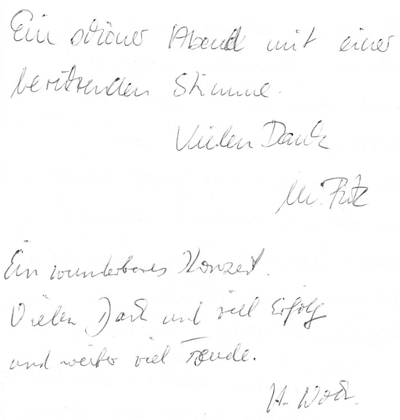 Ein schöner Abend mit einer
berührenden Stimme.
Vielen Dank
M. Fritz
Ein wunderbares Konzert.
Vielen Dank und viel Erfolg
und weiter viel Freude.
H.